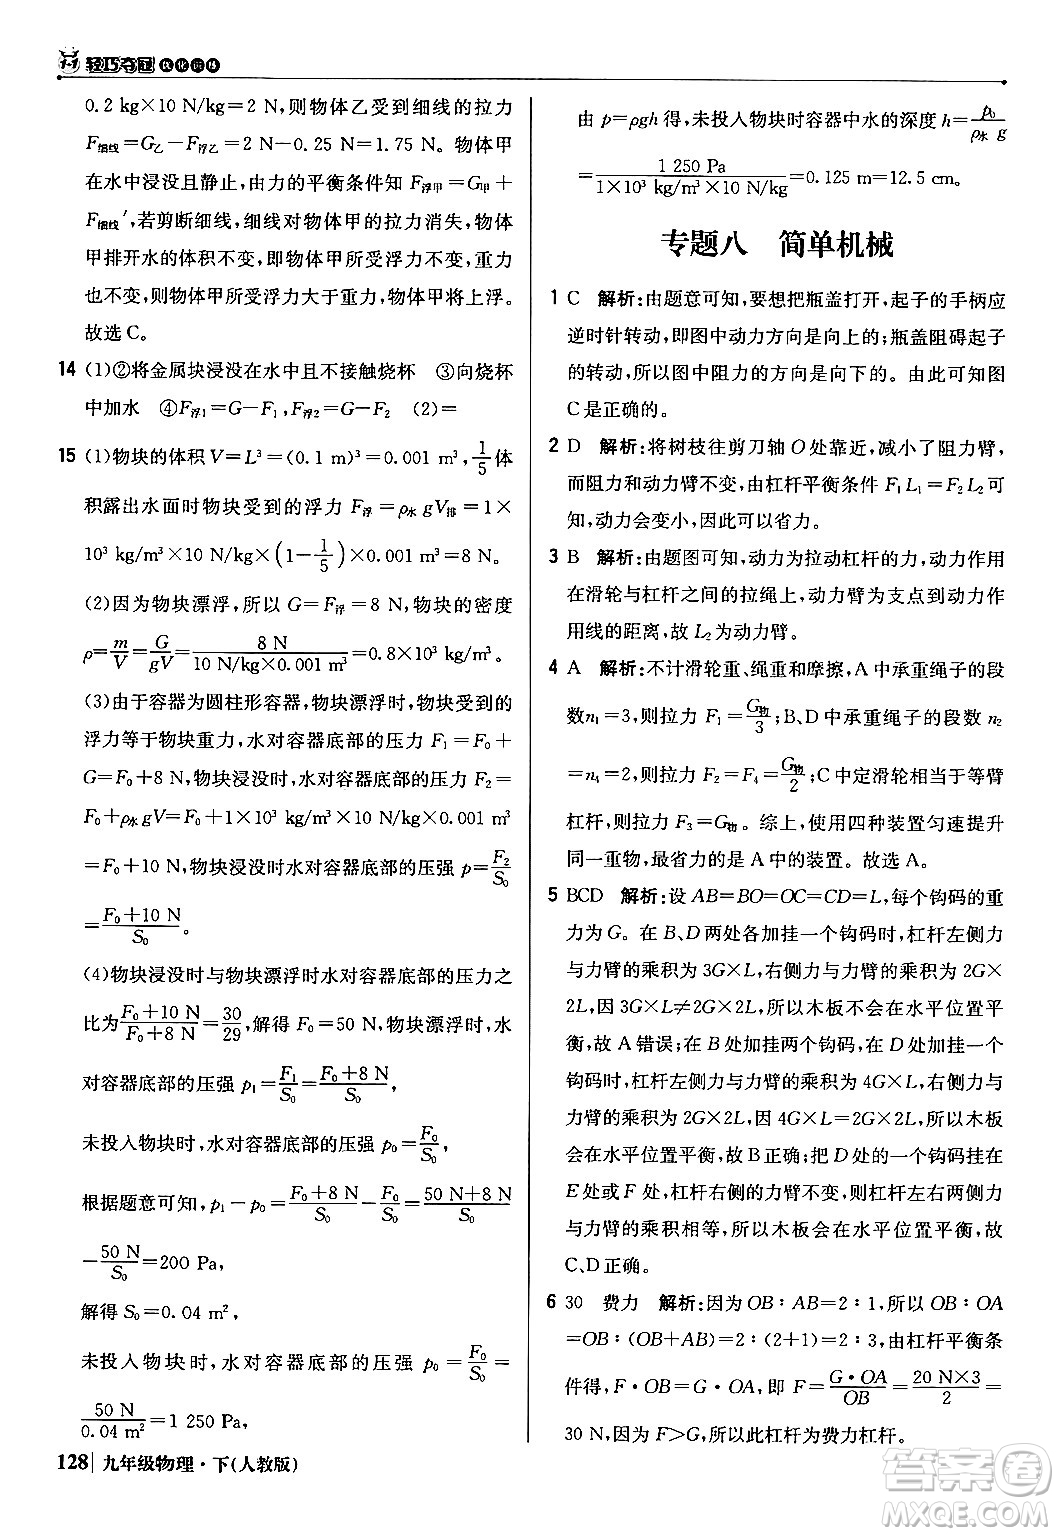 轻巧夺冠 优化训练
0.2 kg×10 N/kg=2 N,则物体乙受到细线的拉力
F细线=G乙-F浮乙=2 N-0.25 N=1.75 N。物体甲
在水中浸没且静止,由力的平衡条件知 F浮甲=G甲+
F细线′,若剪断细线,细线对物体甲的拉力消失,物体
甲排开水的体积不变,受到的浮力大小不变,重力
也不变,物体甲所受浮力大于重力,物体甲将上浮。
故选C。
14 (1)②将金属块浸没在水中且不接触烧杯 ③向烧杯
中加水 ④F浮1=G-F1,F浮2=G-F2 (2)=
15 (1)物块的体积V=L³=(0.1 m)³=0.001 m³,1/5体
积露出水面时物块受到的浮力 F浮=ρ水gV排=1×
10³ kg/m³×10 N/kg×(1-1/5)×0.001 m³=8 N。
(2)因为物块漂浮,所以G=F浮=8 N,物块的密度
ρ=m/V=G/gV=8 N/(10 N/kg×0.001 m³)=0.8×10³ kg/m³。
(3)由于容器为圆柱形容器,物块漂浮时,物块受到的
浮力等于物块重力,水对容器底部的压力 F1=F0+
G=F0+8 N,物块浸没时,水对容器底部的压力 F2=
F0+ρ水gV=F0+1×10³ kg/m³×10 N/kg×0.001 m³
=F0+10 N,物块浸没时水对容器底部的压强 p=F2/S0
=(F0+10 N)/S0。
(4)物块浸没时与物块漂浮时水对容器底部的压力之
比为(F0+10 N)/(F0+8 N)=30/29,解得 F0=50 N,物块漂浮时,水
对容器底部的压强 p1=F1/S0=(F0+8 N)/S0,
未投入物块时,水对容器底部的压强 p0=F0/S0,
根据题意可知,p1-p0=(F0+8 N)/S0-F0/S0=(50 N+8 N)/S0
-50 N/S0=200 Pa,
解得 S0=0.04 m²,
未投入物块时,水对容器底部的压强 p0=F0/S0=
50 N/0.04 m²=1 250 Pa,
128 九年级物理·下(人教版)
由 p=ρgh 得,未投入物块时容器中水的深度 h=p0/(ρ水 g)
=1 250 Pa/(1×10³ kg/m³×10 N/kg)=0.125 m=12.5 cm。
专题八 简单机械
1 C 解析:由题意可知,要想把瓶盖打开,起子的手柄应
逆时针转动,即图中动力方向是向上的;瓶盖阻碍起子
的转动,所以图中阻力的方向是向下的。由此可知图
C是正确的。
2 D 解析:将树枝往剪刀轴 O 处靠近,减小了阻力臂,
而阻力和动力臂不变,由杠杆平衡条件 F1L1=F2L2可
知,动力会变小,因此可以省力。
3 B 解析:由题图可知,动力为拉动杠杆的力,动力作用
在滑轮与杠杆之间的拉绳上,动力臂为支点到动力作
用线的距离,故 L2为动力臂。
4 A 解析:不计滑轮重、绳重和摩擦,A中承重绳子的段
数n1=3,则拉力 F1=G物/3;B、D中承重绳子的段数 n2
=n4=2,则拉力 F2=F4=G物/2;C中定滑轮相当于等臂
杠杆,则拉力 F3=G物。综上,使用四种装置匀速提升
同一重物,最省力的是 A中的装置。故选A。
5 BCD 解析:设 AB=BO=OC=CD=L,每个钩码的重
力为G。在 B、D两处各加挂一个钩码时,杠杆左侧力
与力臂的乘积为 3G×L,右侧力与力臂的乘积为 2G×
2L,因 3G×L≠2G×2L,所以木板不会在水平位置平
衡,故 A错误;在 B处加挂两个钩码,D处加挂一个
钩码时,杠杆左侧力与力臂的乘积为 4G×L,右侧力与
力臂的乘积为 2G×2L,因 4G×L=2G×2L,所以木板
会在水平位置平衡,故 B正确;把 D处的钩码挂在
E处或 F处,杠杆右侧的力臂不变,杠杆左右两侧的力
与力臂的乘积相等,所以木板会在水平位置平衡,故
C、D正确。
6 30 费力 解析:因为 OB∶AB=2∶1,所以 OB∶OA
=OB∶(OB+AB)=2∶(2+1)=2∶3,由杠杆平衡条
件得,F·OB=G·OA,即 F=G·OA/OB=20 N×3/2=
30 N,因为 F>G,所以此杠杆为费力杠杆。
答案圈
MXQE.COM